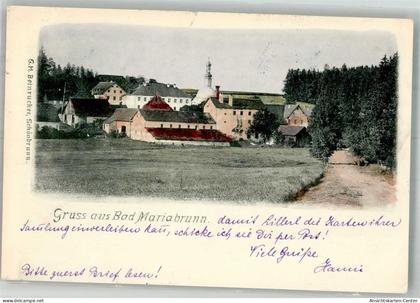 G.M. Bernrucker, Schönbrunn.
Gruss aus Bad Mariabrunn.
damit die Karten ihrer
Samlung einverleiben kan, schicke ich sie Dir per Post!
Viele Grüße
Bitte zuerst Brief lesen!
www.Ansichtskarten-Center.de